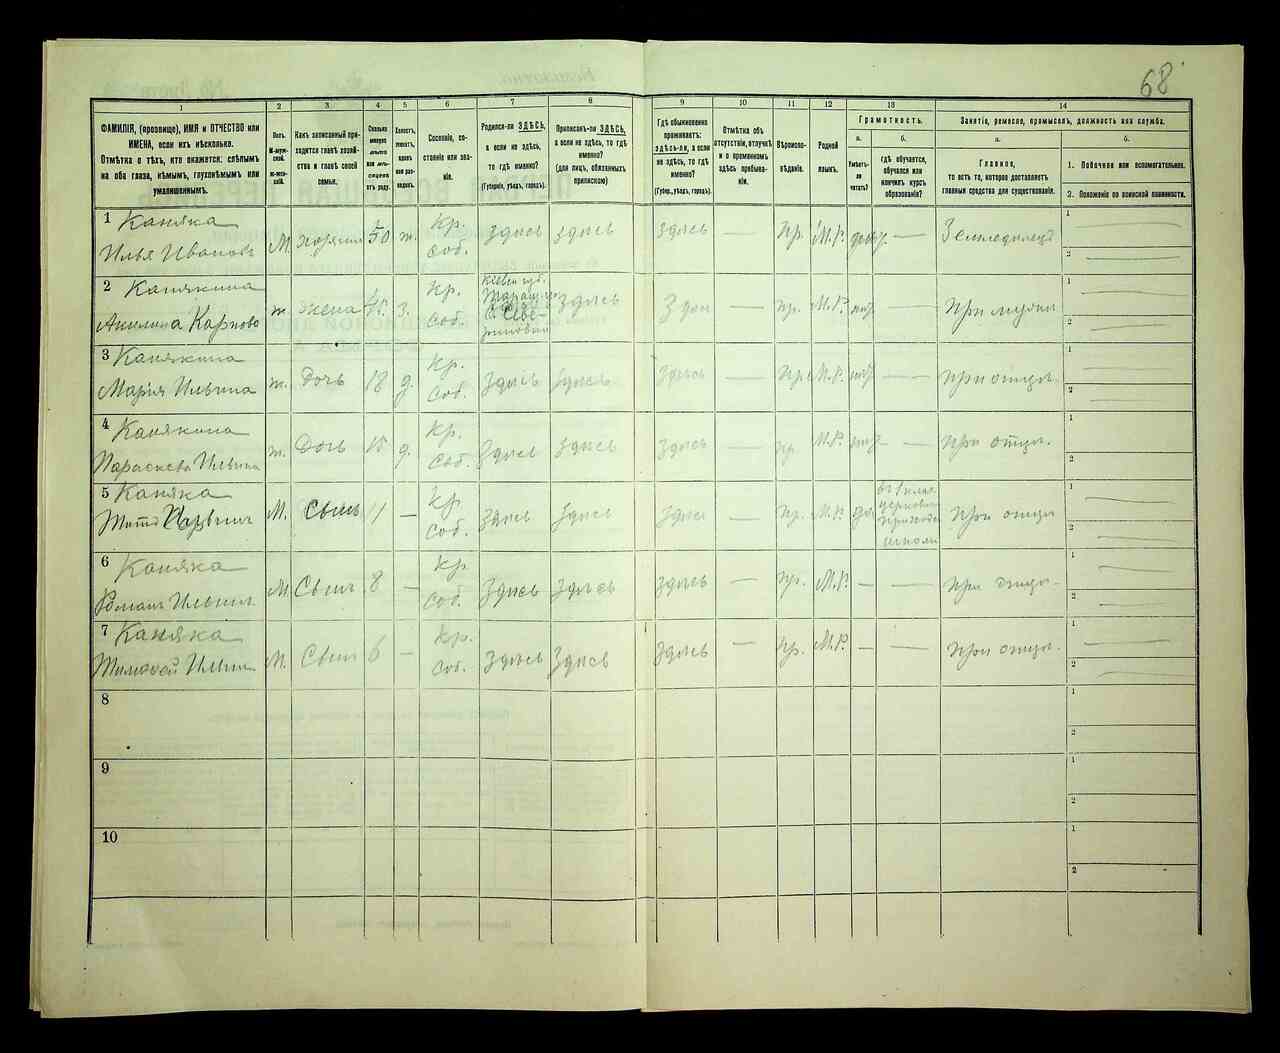 68
1
2
3
4
5
6
7
8
9
10
11
12
13
14
ФАМИЛІЯ, (прозвище), ИМЯ и ОТЧЕСТВО или
ИМЕНА, если ихъ нѣсколько.
Отмѣтка о тѣхъ, кто окажется: слѣпымъ
на оба глаза, нѣмымъ, глухонѣмымъ или
умалишеннымъ.
Полъ.
М-мужской.
ж-женскій.
Какъ записанный приходится
главѣ хозяйства
и главѣ своей
семьи.
Сколько
минуло
лѣтъ
или мѣсяцевъ
отъ роду.
Холостъ,
женатъ,
вдовъ
или разведенъ.
Сословіе, состояніе
или званіе.
Родился-ли ЗДѢСЬ,
а если не здѣсь,
то гдѣ именно?
(Губернія, уѣздъ, городъ).
Приписанъ-ли ЗДѢСЬ,
а если не здѣсь, то гдѣ
именно?
(для лицъ, обязанныхъ
припискою)
Гдѣ обыкновенно
проживаетъ:
здѣсь-ли, а если
не здѣсь, то гдѣ
именно?
(Губер., уѣздъ, городъ).
Отмѣтка объ
отсутствіи, отлучкѣ
и о временномъ
здѣсь пребываніи.
Вѣроисповѣданіе.
Родной
языкъ.
Грамотность.
а.
Умѣетъ-ли
читать?
б.
гдѣ обучается,
обучался или
кончилъ курсъ
образованія?
Занятіе, ремесло, промыселъ, должность или служба.
а.
Главное,
то есть то, которое доставляетъ
главныя средства для существованія.
б.
1. Побочное или вспомогательное.
2. Положеніе по воинской повинности.
1 Каняка
Илья Ивановъ М. хозяинъ 50 ж. Кр. Соб. здѣсь здѣсь здѣсь — Пр. М.Р. — Земледѣлецъ 1 — 2 —
2 Канякина
Акилина Карпова ж. жена 45 З. Кр. Соб. Кіевск губ. здѣсь — пр. М.Р. — 1 — 2 —
3 Канякина
Марія Ильина ж. Дочь 18 д. Кр. Соб. Здѣсь Здѣсь Здѣсь — Пр. М.Р. — при отцѣ. 1 — 2 —
4 Канякина
Параскева Ильина ж. Дочь 15 д. Кр. Соб. Здѣсь Здѣсь Здѣсь — пр. М.Р. — при отцѣ. 1 2
5 Каняка
М. Сынъ 11 — Кр. Соб. Здѣсь Здѣсь Здѣсь — пр. М.Р. при отцѣ 1 — 2 —
6 Каняка
Романъ Ильинъ М. Сынъ 8 — Кр. Соб. Здѣсь Здѣсь Здѣсь — пр. М.Р. — — при отцѣ 1 — 2 —
7 Каняка
Тимофей Ильинъ М. Сынъ 6 — Кр. Соб. Здѣсь Здѣсь Здѣсь — пр. М.Р. — — при отцѣ. 1 — 2 —
8 1 2
9 1 2
10 1 2